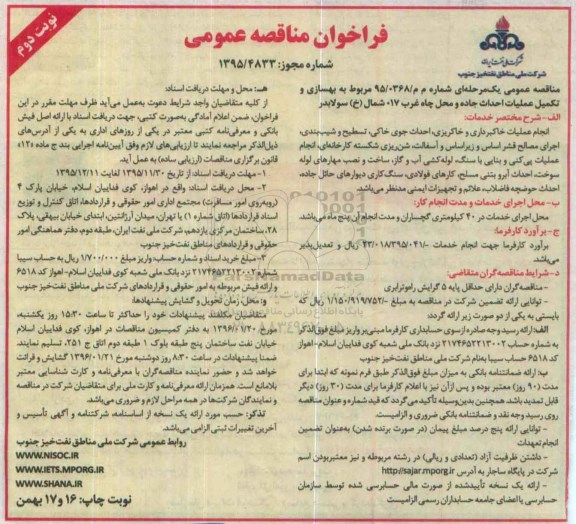 نوبت دوم
فراخوان مناقصه عمومی
شماره مجوز: ۱۳۹۵/۴۸۳۳
شرکت ملی نفت ایران
شرکت ملی مناطق نفت‌خیز جنوب
مناقصه عمومی یک‌مرحله‌ای شماره م م/۹۵/۰۳۶۸ مربوط به بهسازی و
تکمیل عملیات احداث جاده و محل چاه غرب ۰۱۷ شمال (خ) سولابدر
الف- شرح مختصر خدمات:
انجام عملیات خاکبرداری و خاکریزی، احداث جوی خاکی، تسطیح و شیب‌بندی،
اجرای مصالح قشر اساس و زیراساس و آسفالت، شن‌ریزی شکسته کارخانه‌ای، انجام
عملیات پی‌کنی و بنایی با سنگ، لوله‌کشی آب و گاز، ساخت و نصب مهارهای لوله
سوخت، احداث آبرو بتنی مسلح، کارهای فولادی، سنگ‌کاری دیوارهای حائل جاده،
احداث حوضچه فاضلاب، علائم و تجهیزات ایمنی مدنظر می‌باشد.
ب- محل اجرای خدمات و مدت انجام کار:
محل اجرای خدمات در ۴۰ کیلومتری گچساران و مدت انجام آن پنج ماه می‌باشد.
ج- برآورد کارفرما:
برآورد کارفرما جهت انجام خدمات ۴۳/۰۱۸/۳۹۵/۰۴۱/- ریال و تعدیل‌پذیر
می‌باشد.
د- شرایط مناقصه‌گران متقاضی:
- مناقصه‌گران دارای حداقل پایه ۵ گرایش راه‌وترابری
- توانایی ارائه تضمین شرکت در مناقصه به مبلغ -/۱/۱۵۰/۹۱۹/۷۵۲ ریال که
بایستی به یکی از دو صورت زیر ارائه گردد:
الف: ارائه رسید وجه صادره ازسوی حسابداری کارفرما مبنی‌بر واریز مبلغ فوق‌الذکر
به شماره حساب ۲۱۷۴۶۵۲۲۱۳۰۰۲ نزد بانک ملی شعبه کوی فدائیان اسلام- اهواز
کد ۶۵۱۸ حساب سیبا به‌نام شرکت ملی مناطق نفت‌خیز جنوب
ب: ارائه ضمانتنامه بانکی به میزان مبلغ فوق‌الذکر طبق فرم نمونه که ابتدا برای
مدت (۹۰ روز) معتبر بوده و پس ازآن نیز با اعلام کارفرما برای مدت (۳۰ روز) دیگر
قابل تمدید باشد، همچنین بدین‌وسیله تأکید می‌گردد که قید شماره و عنوان مناقصه
روی رسید وجه نقد و ضمانتنامه بانکی ضروری و الزامیست.
- توانایی ارائه پنج درصد مبلغ پیمان (در صورت برنده شدن) به‌عنوان تضمین
انجام تعهدات
- داشتن ظرفیت آزاد (تعدادی و ریالی) در رشته مربوطه و نیز معتبربودن اسم
شرکت در پایگاه ساجار به آدرس http://sajar.mporg.ir
- ارائه یک نسخه تأییدشده از صورت مالی حسابرسی شده توسط سازمان
حسابرسی یا اعضای جامعه حسابداران رسمی الزامیست
هـ: محل و مهلت دریافت اسناد:
از کلیه متقاضیان واجد شرایط دعوت به‌عمل می‌آید ظرف مهلت مقرر در این
فراخوان، ضمن اعلام آمادگی به‌صورت کتبی، جهت دریافت اسناد با ارائه اصل فیش
بانکی و معرفی‌نامه کتبی معتبر در یکی از روزهای اداری به یکی از آدرس‌های
ذیل‌الذکر مراجعه نمایند تا ارزیابی‌های لازم وفق آیین‌نامه اجرایی بند ج ماده «۱۲»
قانون برگزاری مناقصات (ارزیابی ساده) به عمل آید.
۱- مهلت دریافت اسناد: از تاریخ ۱۳۹۵/۱۱/۳۰ لغایت ۱۳۹۵/۱۲/۱۱
۲- محل دریافت اسناد واقع در اهواز، کوی فدائیان اسلام، خیابان پارک ۴
(روبه‌روی امور مسافرت) مجتمع اداری امور حقوقی و قراردادها، اتاق کنترل و توزیع
اسناد قراردادها (اتاق شماره ۱) یا تهران، میدان آرژانتین، ابتدای خیابان بیهقی، پلاک
۲۸، ساختمان مرکزی یازدهم، شرکت ملی نفت ایران، طبقه دوم، دفتر هماهنگی امور
حقوقی و قراردادهای مناطق نفت‌خیز جنوب
۳- مبلغ خرید اسناد و شماره حساب: واریز مبلغ ۱/۷۰۰/۰۰۰ ریال به حساب سیبا
شماره ۲۱۷۴۶۵۲۲۱۳۰۰۲ نزد بانک ملی شعبه کوی فدائیان اسلام- اهواز کد ۶۵۱۸
و ارائه فیش مربوطه به امور حقوقی و قراردادهای شرکت ملی مناطق نفت‌خیز جنوب
و: محل، زمان تحویل و گشایش پیشنهادها:
متقاضیان مکلفند پیشنهادات خود را حداکثر تا ساعت ۱۵:۳۰ روز یکشنبه،
مورخ ۱۳۹۶/۰۱/۲۰ به دفتر کمیسیون مناقصات در اهواز، کوی فدائیان اسلام
خیابان نفت ساختمان پنج طبقه بلوک ۱ طبقه دوم اتاق ج ۲۵۱، تسلیم نمایند.
ضمناً پیشنهادات در ساعت ۸:۳۰ روز دوشنبه مورخ ۱۳۹۶/۰۱/۲۱ گشایش و قرائت
خواهد شد و حضور نماینده مناقصه‌گران با معرفی‌نامه و کارت شناسایی معتبر
بلامانع است. همزمان ارائه معرفی‌نامه و کارت ملی برای متقاضیان شرکت در مناقصه
و نمایندگان شرکت‌ها در همه مراحل لازم و ضروری می‌باشد.
تذکر: حسب مورد ارائه یک نسخه از اساسنامه، شرکتنامه و آگهی تأسیس و
آخرین تغییرات ثبتی الزامی می‌باشد.
روابط عمومی شرکت ملی مناطق نفت‌خیز جنوب
WWW.NISOC.IR
WWW.IETS.MPORG.IR
WWW.SHANA.IR
نوبت چاپ: ۱۶ و ۱۷ بهمن